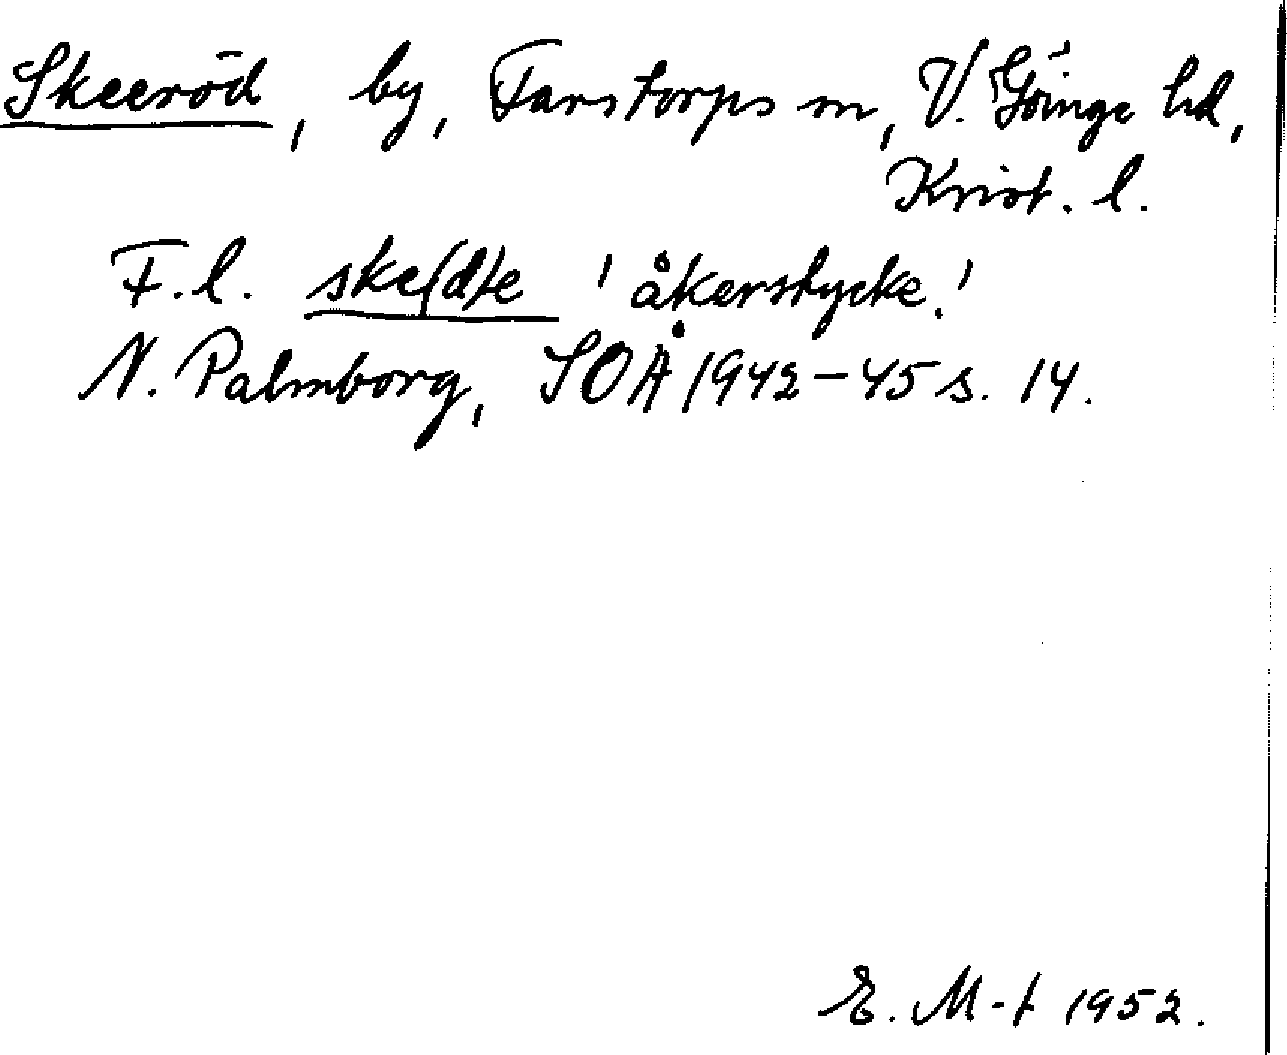 Skeeröd, by, Farstorps sn, V. Göinge hd,
Krist. l.
F.l. ske(d)e 'åkerstycke.'
N. Palmborg, SOÅ 1942-45 s. 14.
E. M-t 1952.